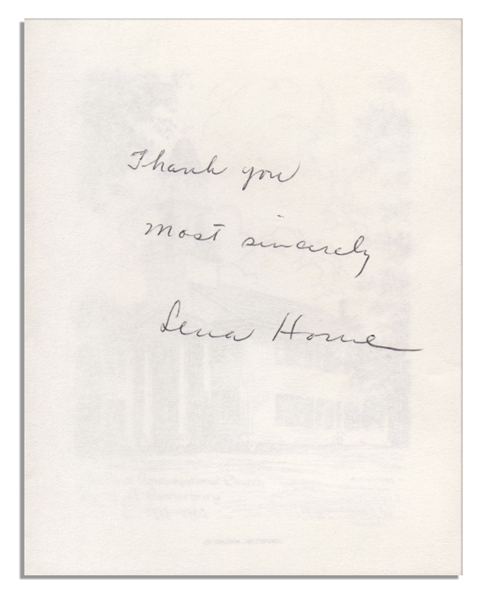 Thank you
most sincerely
Lena Horne